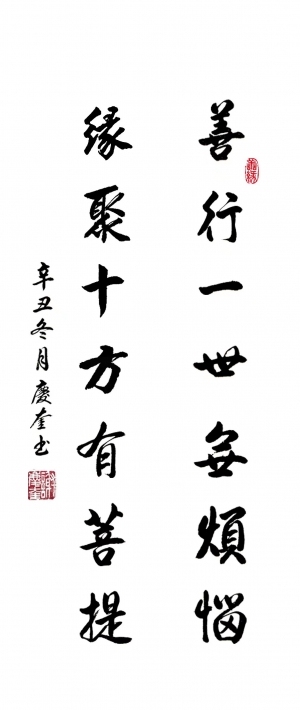 善行一世無煩惱
緣聚十方有菩提
辛丑冬月慶奎书